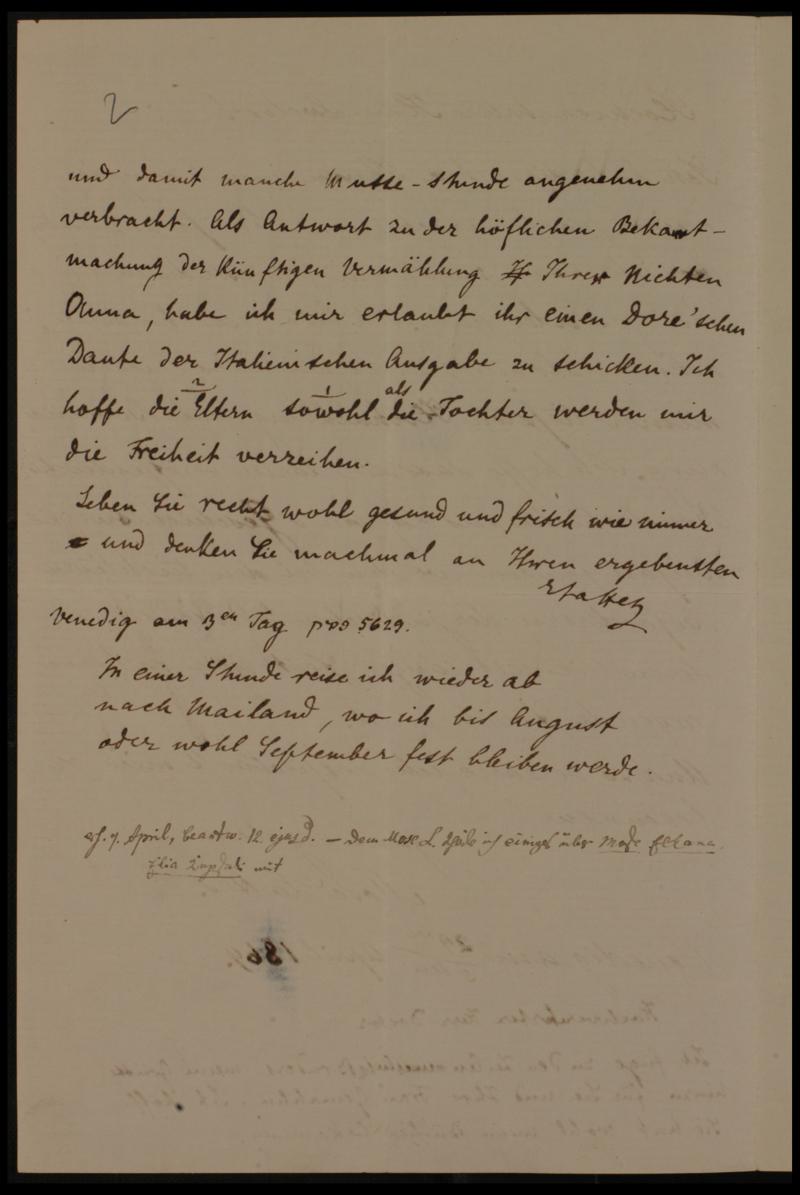 2
und damit manche Musse-Stunde angenehm
verbracht. Als Antwort zu der höflichen Bekant-
machung der künftigen Vermählung Ihrer Nichten
Anna, habe ich mir erlaubt ihr einen Dore'schen
Dante der Italienischen Ausgabe zu schicken. Ich
hoffe die Eltern sowohl als die Tochter werden mir
die Freiheit verzeihen.
Leben Sie recht wohl gesund und frisch wie immer
und denken Sie machmal an Ihren ergebensten
Venedig am 3en Tag פסח 5629.
In einer Stunde reise ich wieder ab
nach Mailand, wo ich bis August
oder wohl September fest bleiben werde.
April, beantw. 12 ejusd. – Dem Mose L. einiges über Mose Elkana
Elia mit